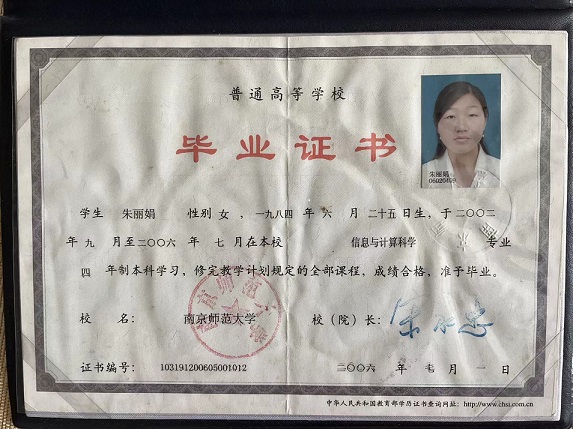 普通高等学校
毕业证书
朱丽娟
06020409
学生 朱丽娟 性别 女, 一九八四 年 六 月 二十五 日生, 于 二〇〇二
年 九 月至 二〇〇六 年 七 月在本校 信息与计算科学 专业
四 年制本科学习, 修完教学计划规定的全部课程, 成绩合格, 准予毕业。
校 名: 南京师范大学 校(院)长:
证书编号: 103191200605001012 二〇〇六 年 七 月 一 日
中华人民共和国教育部学历证书查询网址: http://www.chsi.com.cn